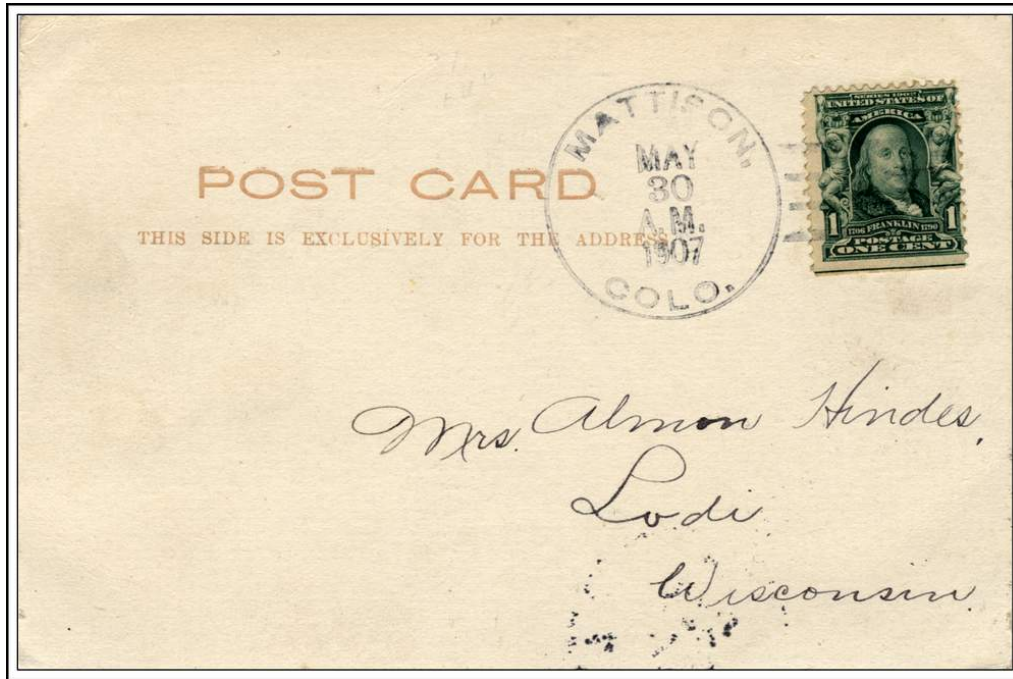 POST CARD
THIS SIDE IS EXCLUSIVELY FOR THE ADDRESS
MATTISON,
MAY
30
A.M.
1907
COLO.
SERIES 1902
UNITED STATES OF
AMERICA
1 1706 FRANKLIN 1790 1
POSTAGE
ONE CENT
Mrs. Almon Hindes,
Lodi
Wisconsin